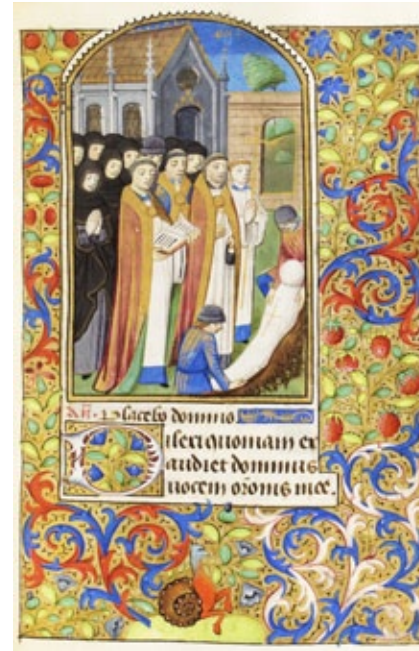 añ. Placebo domino
Dilexi quoniam ex
audiet dominus
vocem orõnis mee.